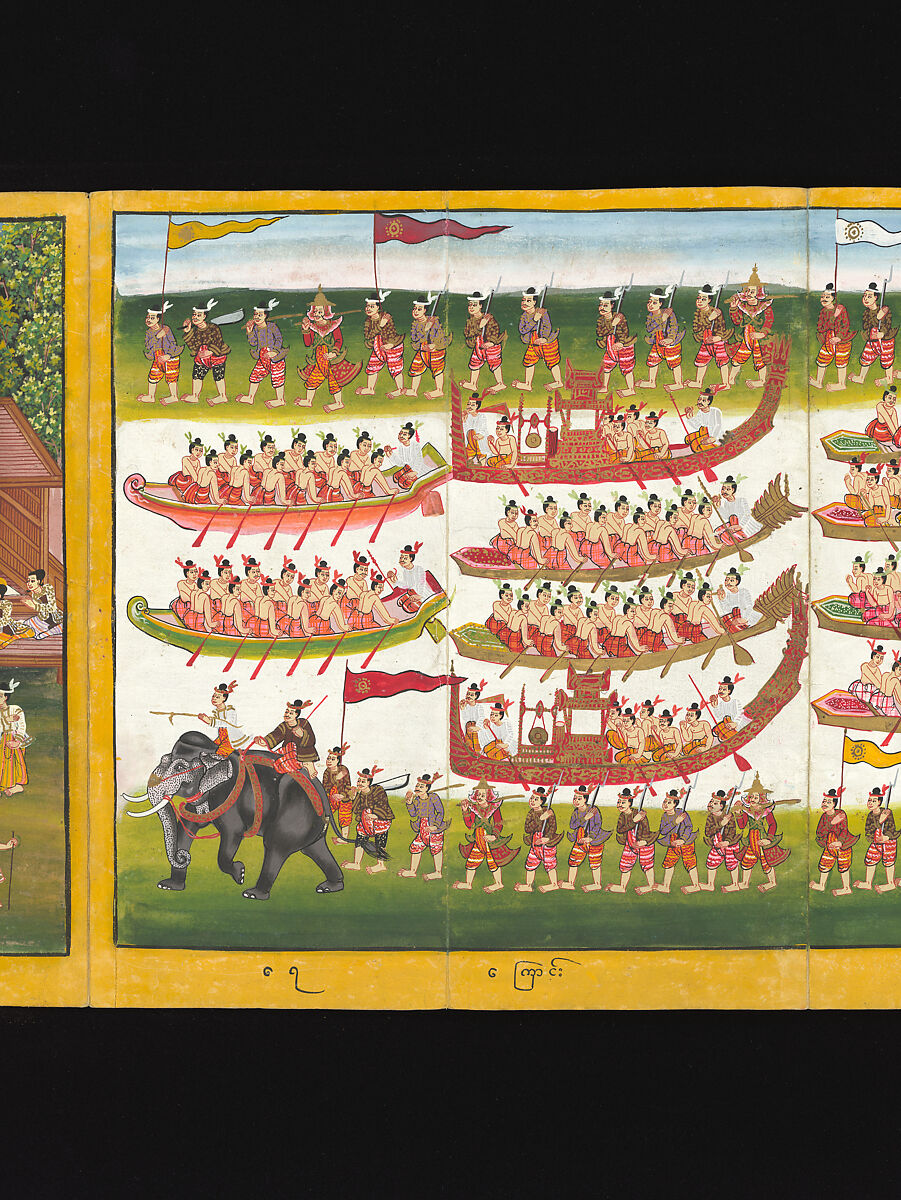 ရေ ကြောင်း